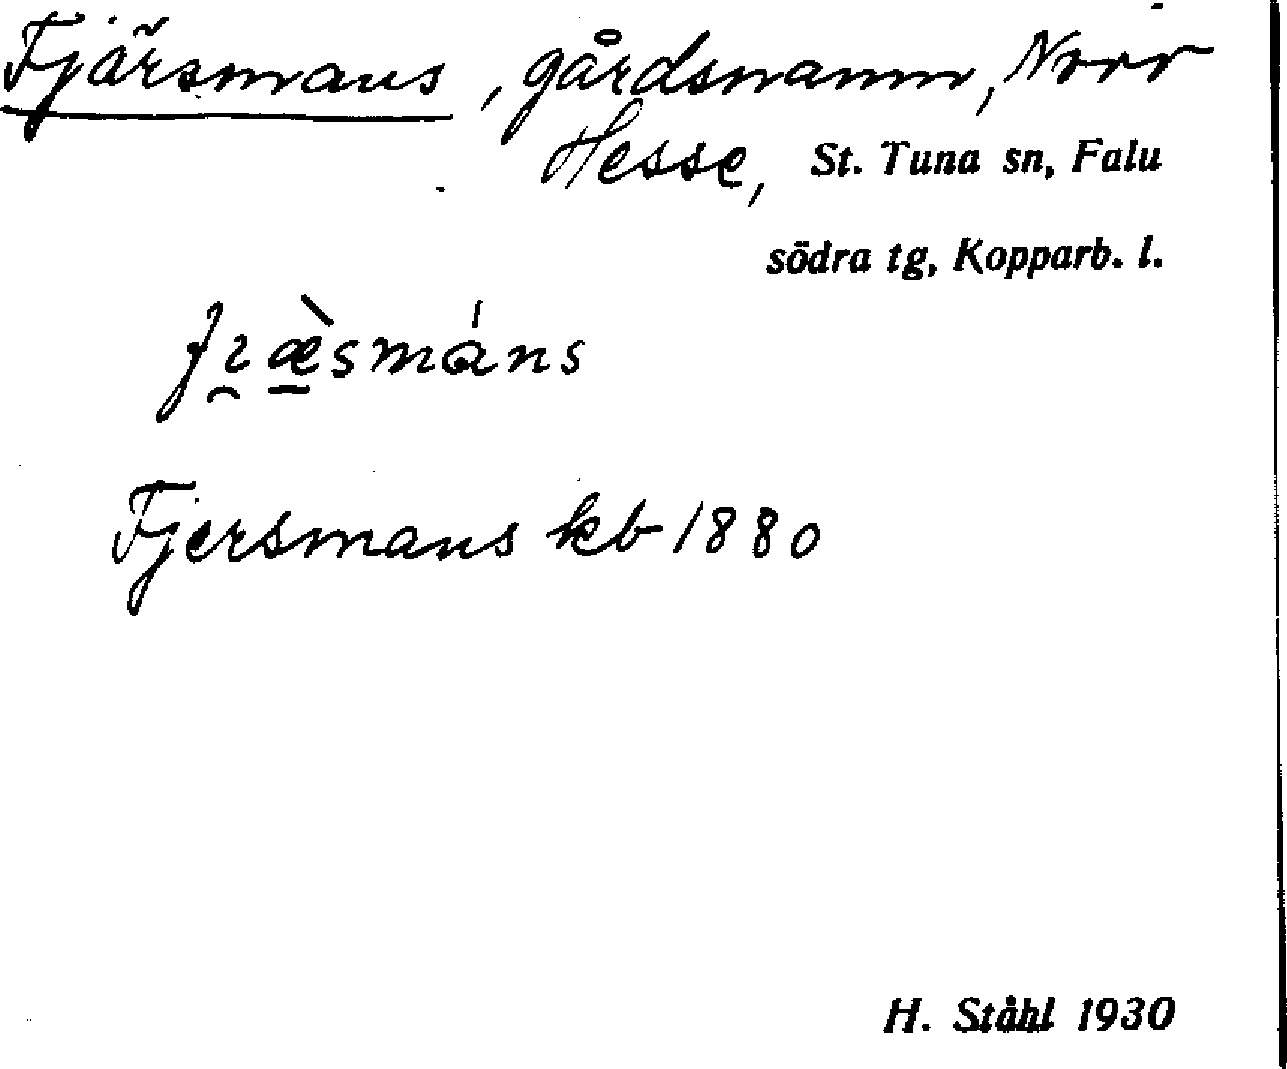 Fjärsmans, gårdsnamn, Norr
Hesse, St. Tuna sn, Falu
södra tg, Kopparb. l.
fı̯æ̠̀smáns
Fjersmans kb 1880
H. Ståhl 1930